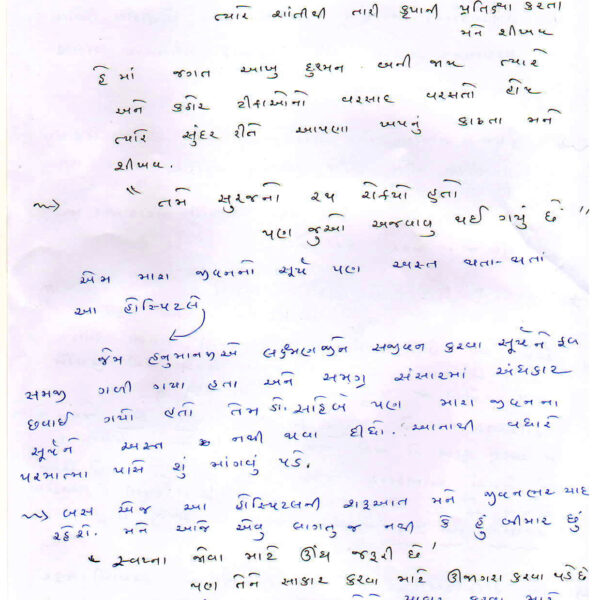 ત્યારે શાંતીથી તારી કૃપાની પ્રતિક્ષા કરતા
મને શીખવ
હે માં જગત આખુ દુશ્મન બની જાય ત્યારે
અને કઠોર ટીકાઓનો વરસાદ વરસતો હોય
ત્યારે સુંદર રીતે આપણા ખપનું કાઢતા મને
શીખવ.
"તમે સુરજનો રથ રોક્યો હતો
પણ જુઓ અજવાળુ થઈ ગયું છે"
એમ મારા જીવનનો સૂર્ય પણ અસ્ત થતા-થતાં
આ હોસ્પિટલે
જેમ હનુમાનજીએ લક્ષ્મણજીને સજીવન કરવા સૂર્યને ફળ
સમજી ગળી ગયા હતા અને સમગ્ર સંસારમાં અંધકાર
છવાઈ ગયો હતો તેમ ડો. સાહેબે પણ મારા જીવનના
સૂર્યને અસ્ત નથી થવા દીધો. આનાથી વધારે
પરમાત્મા પાસે શું માંગવું પડે.
બસ એજ આ હોસ્પિટલની શરૂઆત મને જીવનભર યાદ
રહેશે. મને આજે એવુ લાગતુ જ નથી કે હું બીમાર છું
"સ્વપ્ના જોવા માટે ઊંઘ જરૂરી છે'
પણ તેને સાકાર કરવા માટે ઊજાગરા કરવા પડે છે